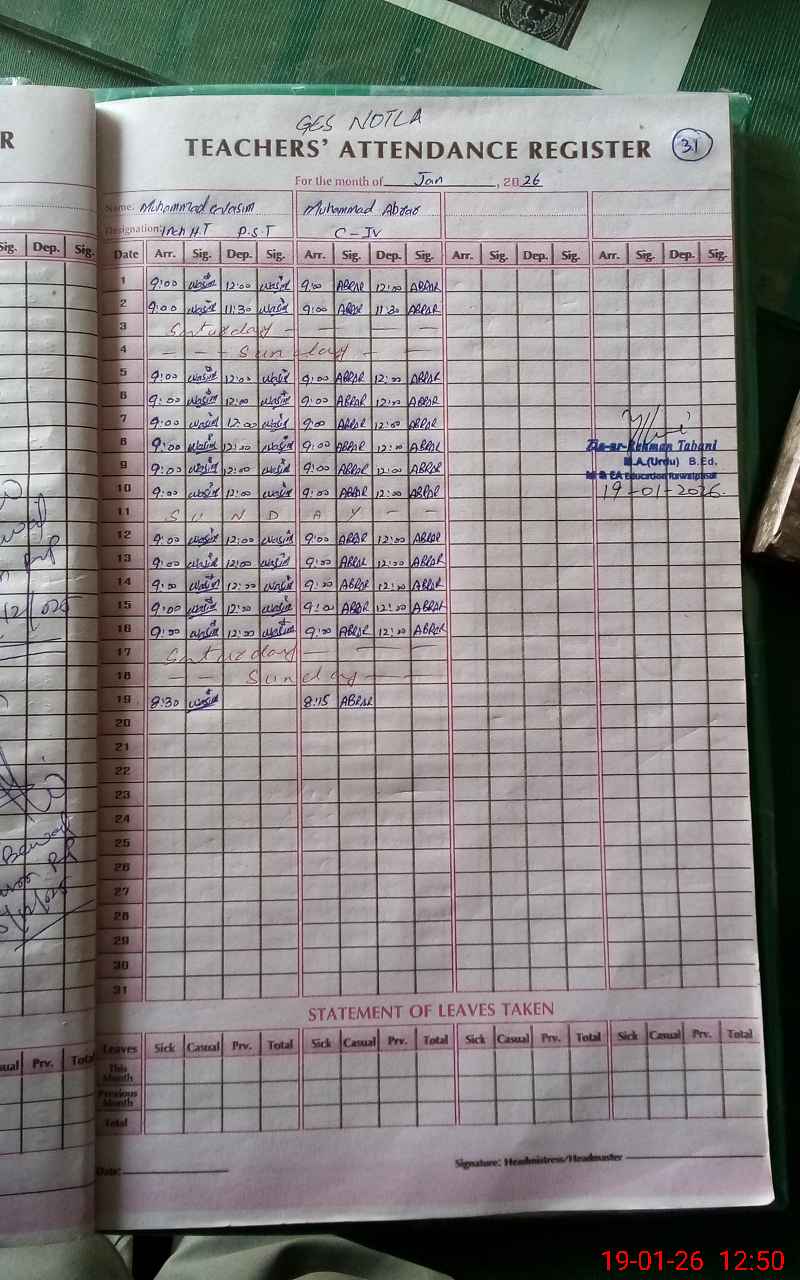 GES NOTLA
TEACHERS' ATTENDANCE REGISTER 31
For the month of Jan, 2026
Name: Muhammad Wasim Muhammad Abrar
Designation: Inch H.T P.S.T C-IV
Date Arr. Sig. Dep. Sig. Arr. Sig. Dep. Sig. Arr. Sig. Dep. Sig. Arr. Sig. Dep. Sig.
1 9:00 wasim 12:00 wasim 9:00 ABRAR 12:00 ABRAR
2 9:00 wasim 11:30 wasim 9:00 ABRAR 11:30 ABRAR
3 Saturday - - - - -
4 - - - Sunday - -
5 9:00 wasim 12:00 wasim 9:00 ABRAR 12:00 ABRAR
6 9:00 wasim 12:00 wasim 9:00 ABRAR 12:00 ABRAR
7 9:00 wasim 12:00 wasim 9:00 ABRAR 12:00 ABRAR
8 9:00 wasim 12:00 wasim 9:00 ABRAR 12:00 ABRAR
9 9:00 wasim 12:00 wasim 9:00 ABRAR 12:00 ABRAR
10 9:00 wasim 12:00 wasim 9:00 ABRAR 12:00 ABRAR
11 S U N D A Y - -
12 9:00 wasim 12:00 wasim 9:00 ABRAR 12:00 ABRAR
13 9:00 wasim 12:00 wasim 9:00 ABRAR 12:00 ABRAR
14 9:00 wasim 12:00 wasim 9:00 ABRAR 12:00 ABRAR
15 9:00 wasim 12:00 wasim 9:00 ABRAR 12:00 ABRAR
16 9:00 wasim 12:00 wasim 9:00 ABRAR 12:00 ABRAR
17 Saturday - - - -
18 - - Sunday - -
19 8:30 wasim 8:15 ABRAR
20
21
22
23
24
25
26
27
28
29
30
31
Zia-ur-Rehman Tabani
M.A.(Urdu) B.Ed.
M & EA Education Rawalpindi
19-01-2026
STATEMENT OF LEAVES TAKEN
Leaves Sick Casual Prv. Total Sick Casual Prv. Total Sick Casual Prv. Total Sick Casual Prv. Total
This Month
Previous Month
Total
Date:
Signature: Headmistress/Headmaster
R
Sig. Dep. Sig.
Prv. Total
19-01-26 12:50